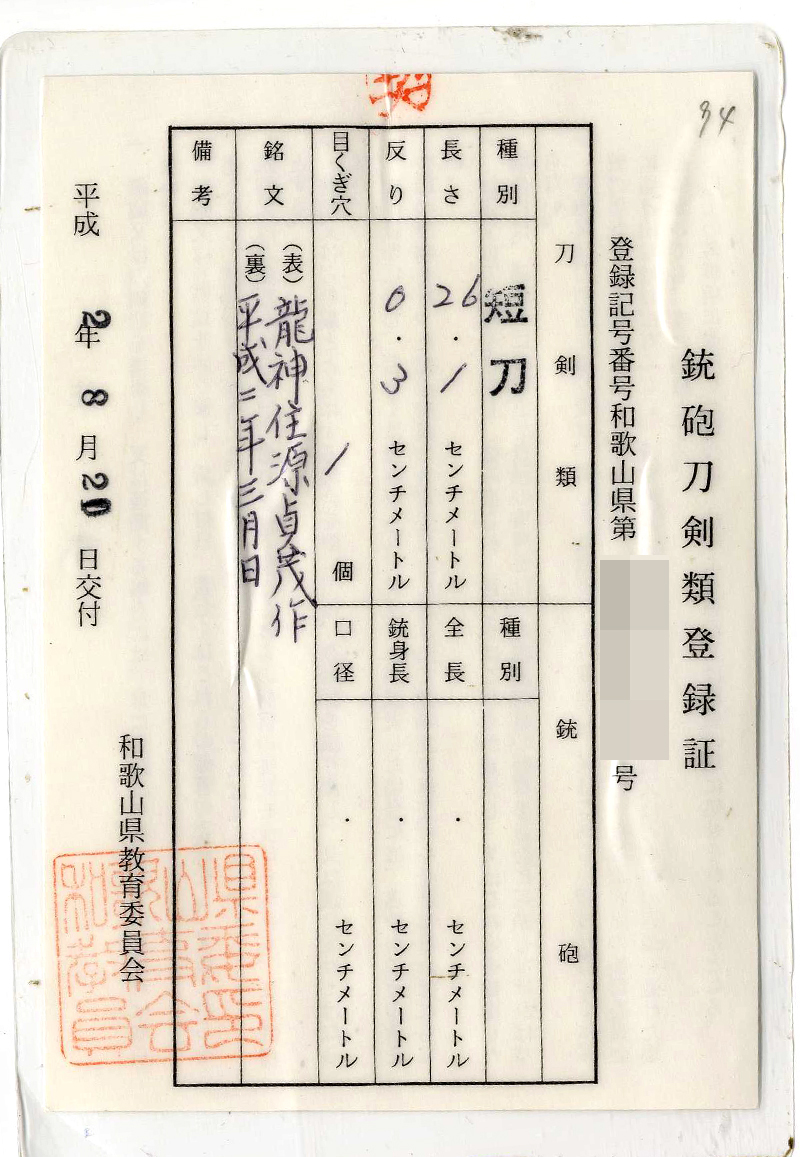 銃砲刀剣類登録証
登録記号番号和歌山県第
号
34
刀剣類
種別
短刀
長さ
26.1センチメートル
反り
0.3センチメートル
目くぎ穴
1個
銘文
(表)龍神住源貞茂作
(裏)平成二年三月日
備考
銃砲
種別
全長
.センチメートル
銃身長
.センチメートル
口径
.センチメートル
平成2年8月20日交付
和歌山県教育委員会